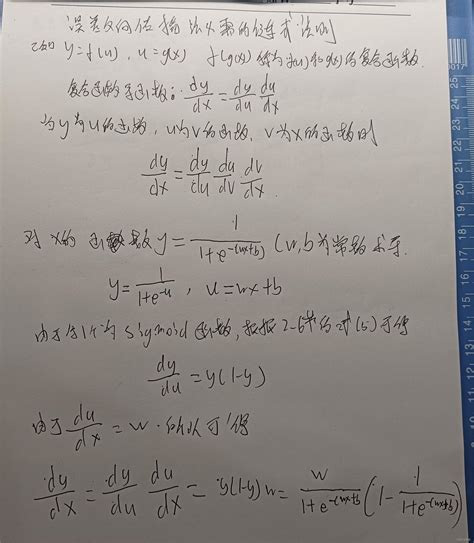 误差反向传播必需的链式法则
已知 y=f(u), u=g(x) f(g(x)) 称为f(u)和g(x)的复合函数.
复合函数导函数: dy/dx = dy/du du/dx
当y为u的函数, u为v的函数, v为x的函数则
dy/dx = dy/du du/dv dv/dx
对x的函数y= 1/(1+e^-(wx+b)) (w,b为常数 求导.
y= 1/(1+e^-u) , u=wx+b
由于 sigmoid函数, 根据2-6 的 式(5)可得
dy/du = y(1-y)
由于 du/dx = w. 所以可得
dy/dx = dy/du du/dx = y(1-y)w = w/(1+e^-(wx+b)) (1- 1/(1+e^-(wx+b)))
17 18 19 20 21 22 23 24 25